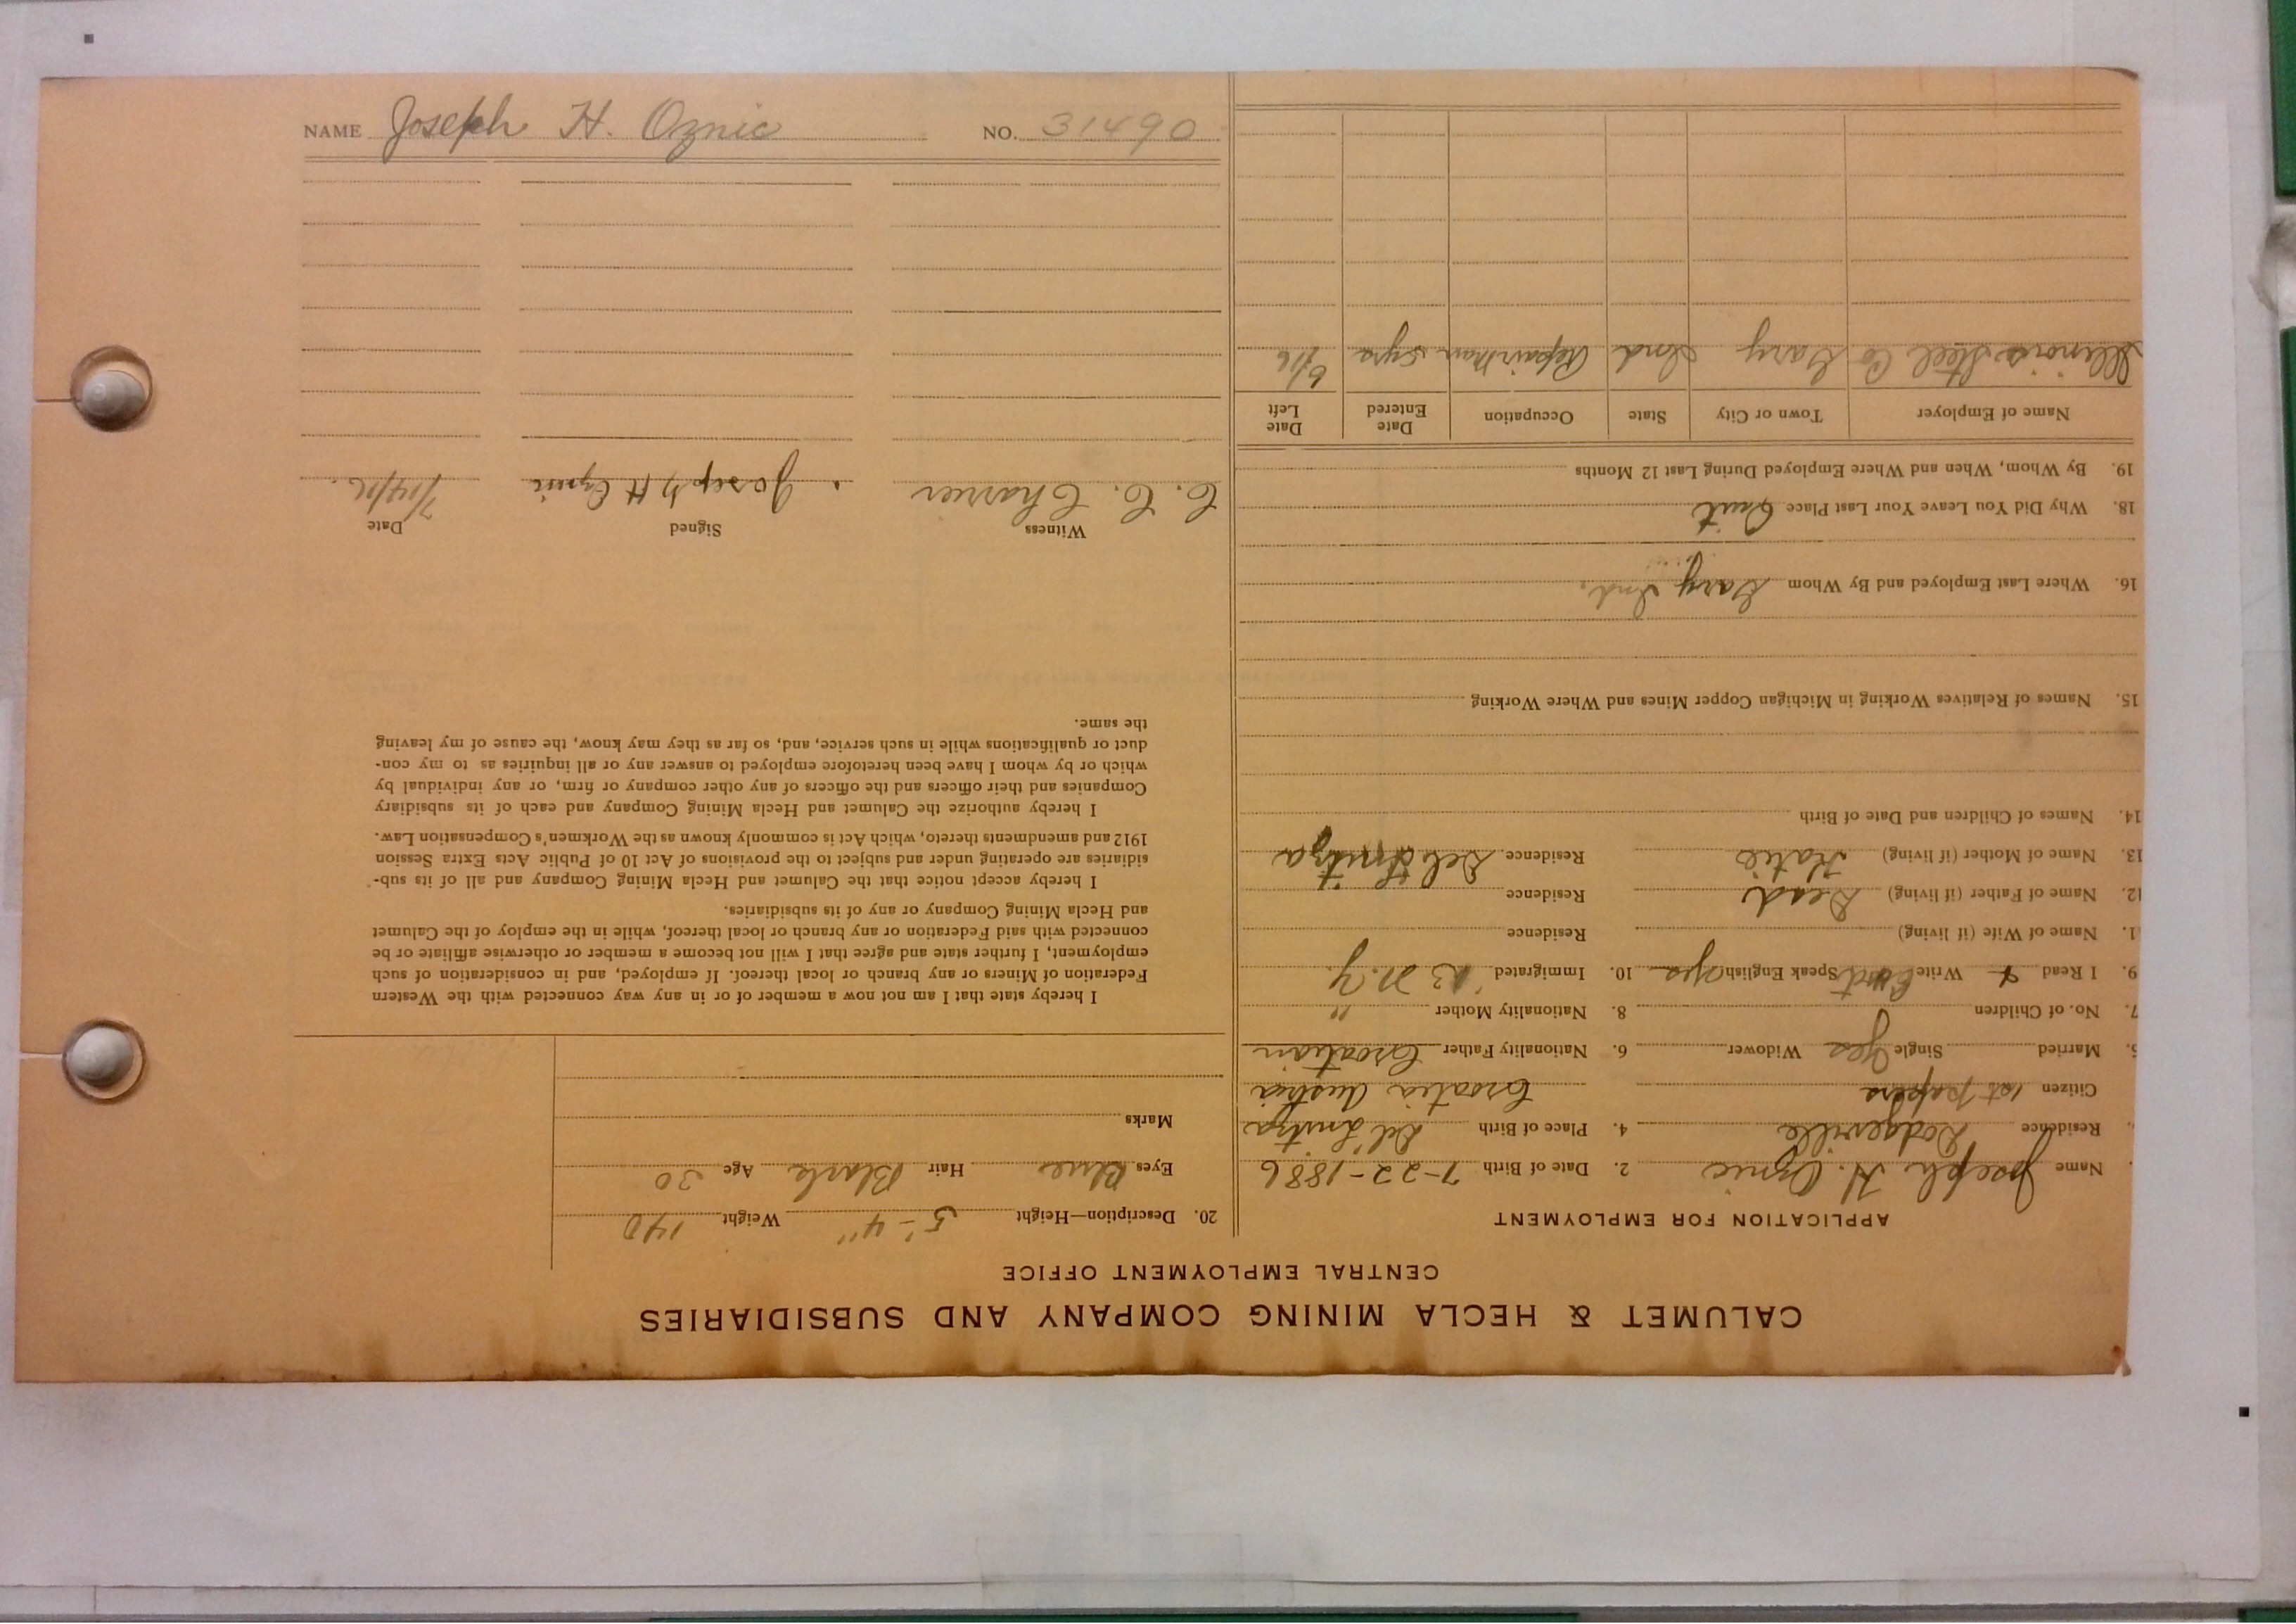 NAME Joseph H. Oznic NO. 31490
CALUMET & HECLA MINING COMPANY AND SUBSIDIARIES
CENTRAL EMPLOYMENT OFFICE
APPLICATION FOR EMPLOYMENT
Name Joseph H. Oznic 2. Date of Birth 7-22-1886
Residence Dodgeville 4. Place of Birth
Citizen 1st papers Croatia Austria
5. Married Single Yes Widower 6. Nationality Father Croatian
7. No. of Children 8. Nationality Mother "
9. I Read & Write Speak English Yes 10. Immigrated '13 N.Y.
11. Name of Wife (if living) Residence
12. Name of Father (if living) Dead Residence
13. Name of Mother (if living) Katie Residence
14. Names of Children and Date of Birth
15. Names of Relatives Working in Michigan Copper Mines and Where Working
16. Where Last Employed and By Whom Gary Ind.
18. Why Did You Leave Your Last Place Quit
19. By Whom, When and Where Employed During Last 12 Months
Name of Employer Town or City State Occupation Date Entered Date Left
Illinois Steel Co Gary Ind Repairman 6/16
20. Description—Height 5'-4" Weight 140
Eyes Blue Hair Black Age 30
Marks
I hereby state that I am not now a member of or in any way connected with the Western
Federation of Miners or any branch or local thereof. If employed, and in consideration of such
employment, I further state and agree that I will not become a member or otherwise affiliate or be
connected with said Federation or any branch or local thereof, while in the employ of the Calumet
and Hecla Mining Company or any of its subsidiaries.
I hereby accept notice that the Calumet and Hecla Mining Company and all of its sub-
sidiaries are operating under and subject to the provisions of Act 10 of Public Acts Extra Session
1912 and amendments thereto, which Act is commonly known as the Workmen's Compensation Law.
I hereby authorize the Calumet and Hecla Mining Company and each of its subsidiary
Companies and their officers and the officers of any other company or firm, or any individual by
which or by whom I have been heretofore employed to answer any or all inquiries as to my con-
duct or qualifications while in such service, and, so far as they may know, the cause of my leaving
the same.
Witness Signed Date
C. C. Charrier Joseph H Oznic 7/14/16.